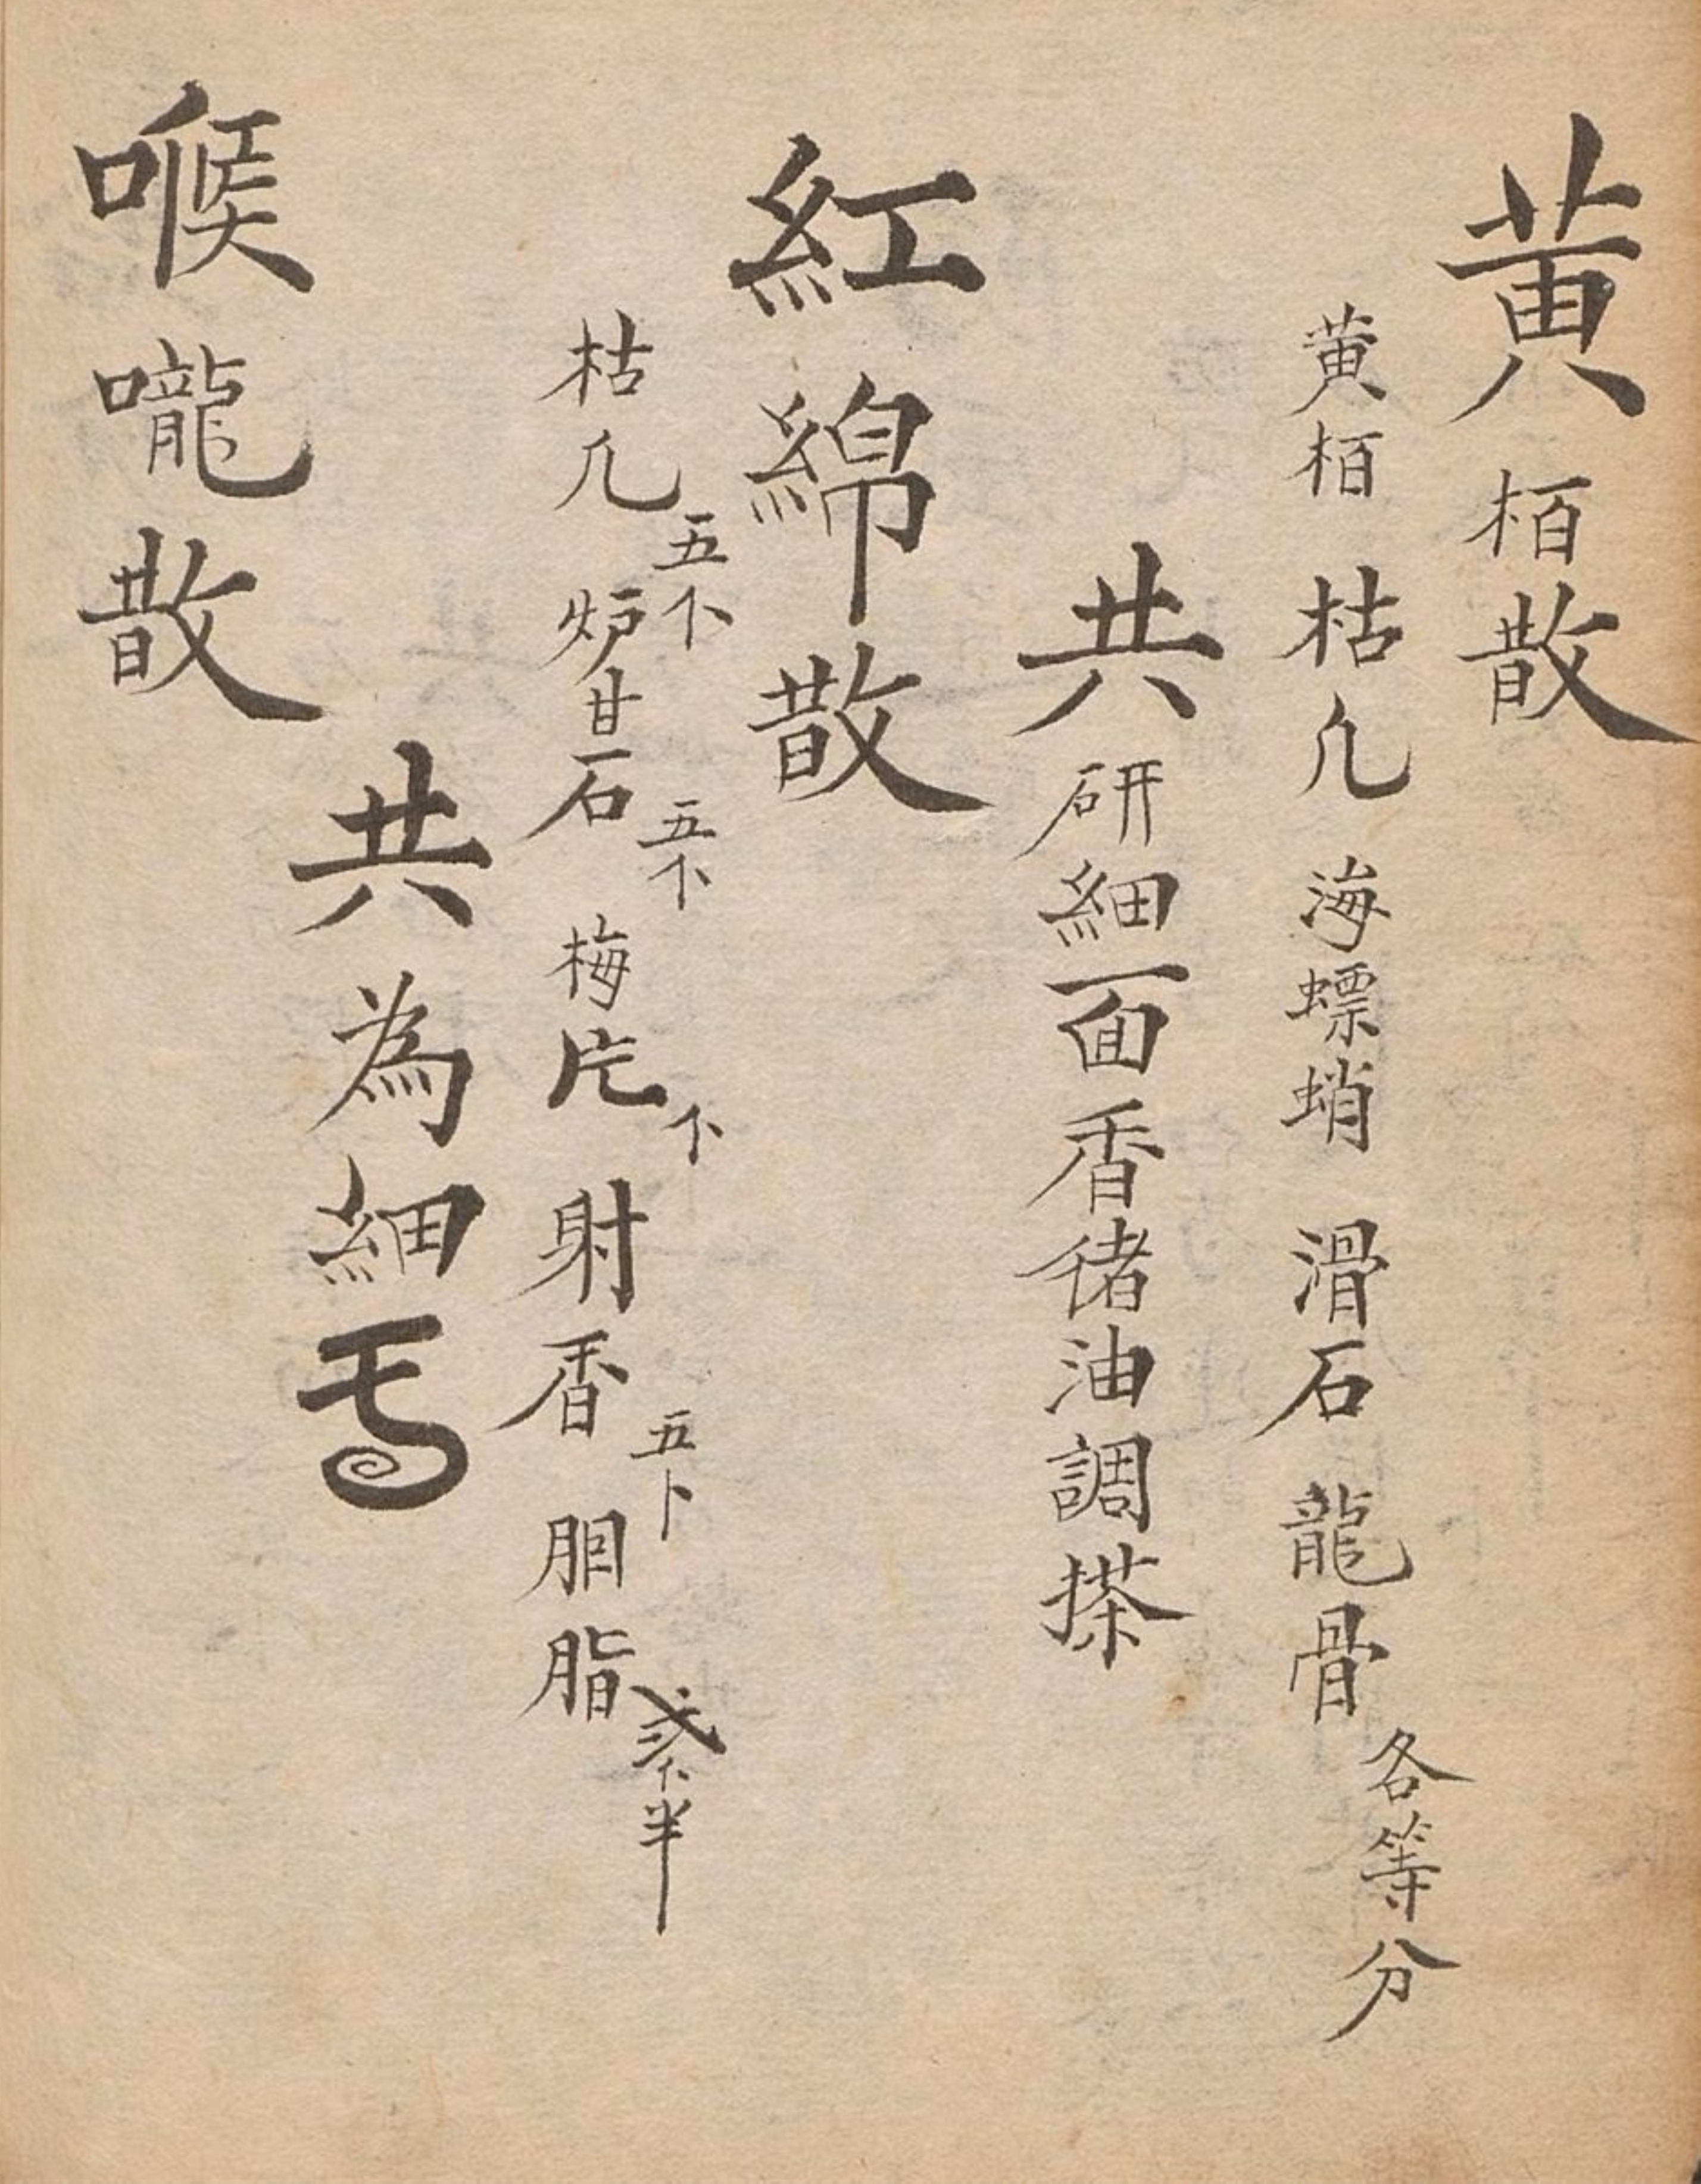 黄栢散
黄栢 枯凢 海螵蛸 滑石 龍骨 各等分
共研細面香偖油調搽
紅綿散
枯凢 五下 炉甘石 五下 梅片 下 射香 五卜 胭脂 弍下半
共為細丐
喉嚨散